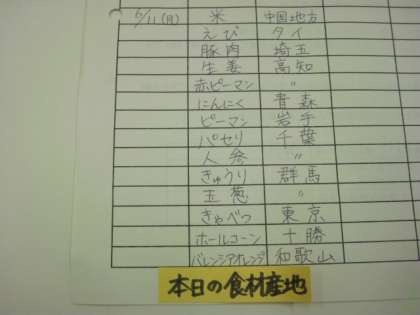 6/11(月) 米 中国地方
えび タイ
豚肉 埼玉
生姜 高知
赤ピーマン 〃
にんにく 青森
ピーマン 岩手
パセリ 千葉
人参 〃
きゅうり 群馬
玉葱 〃
きゃべつ 東京
ホールコーン 十勝
バレンシアオレンジ 和歌山
本日の食材産地